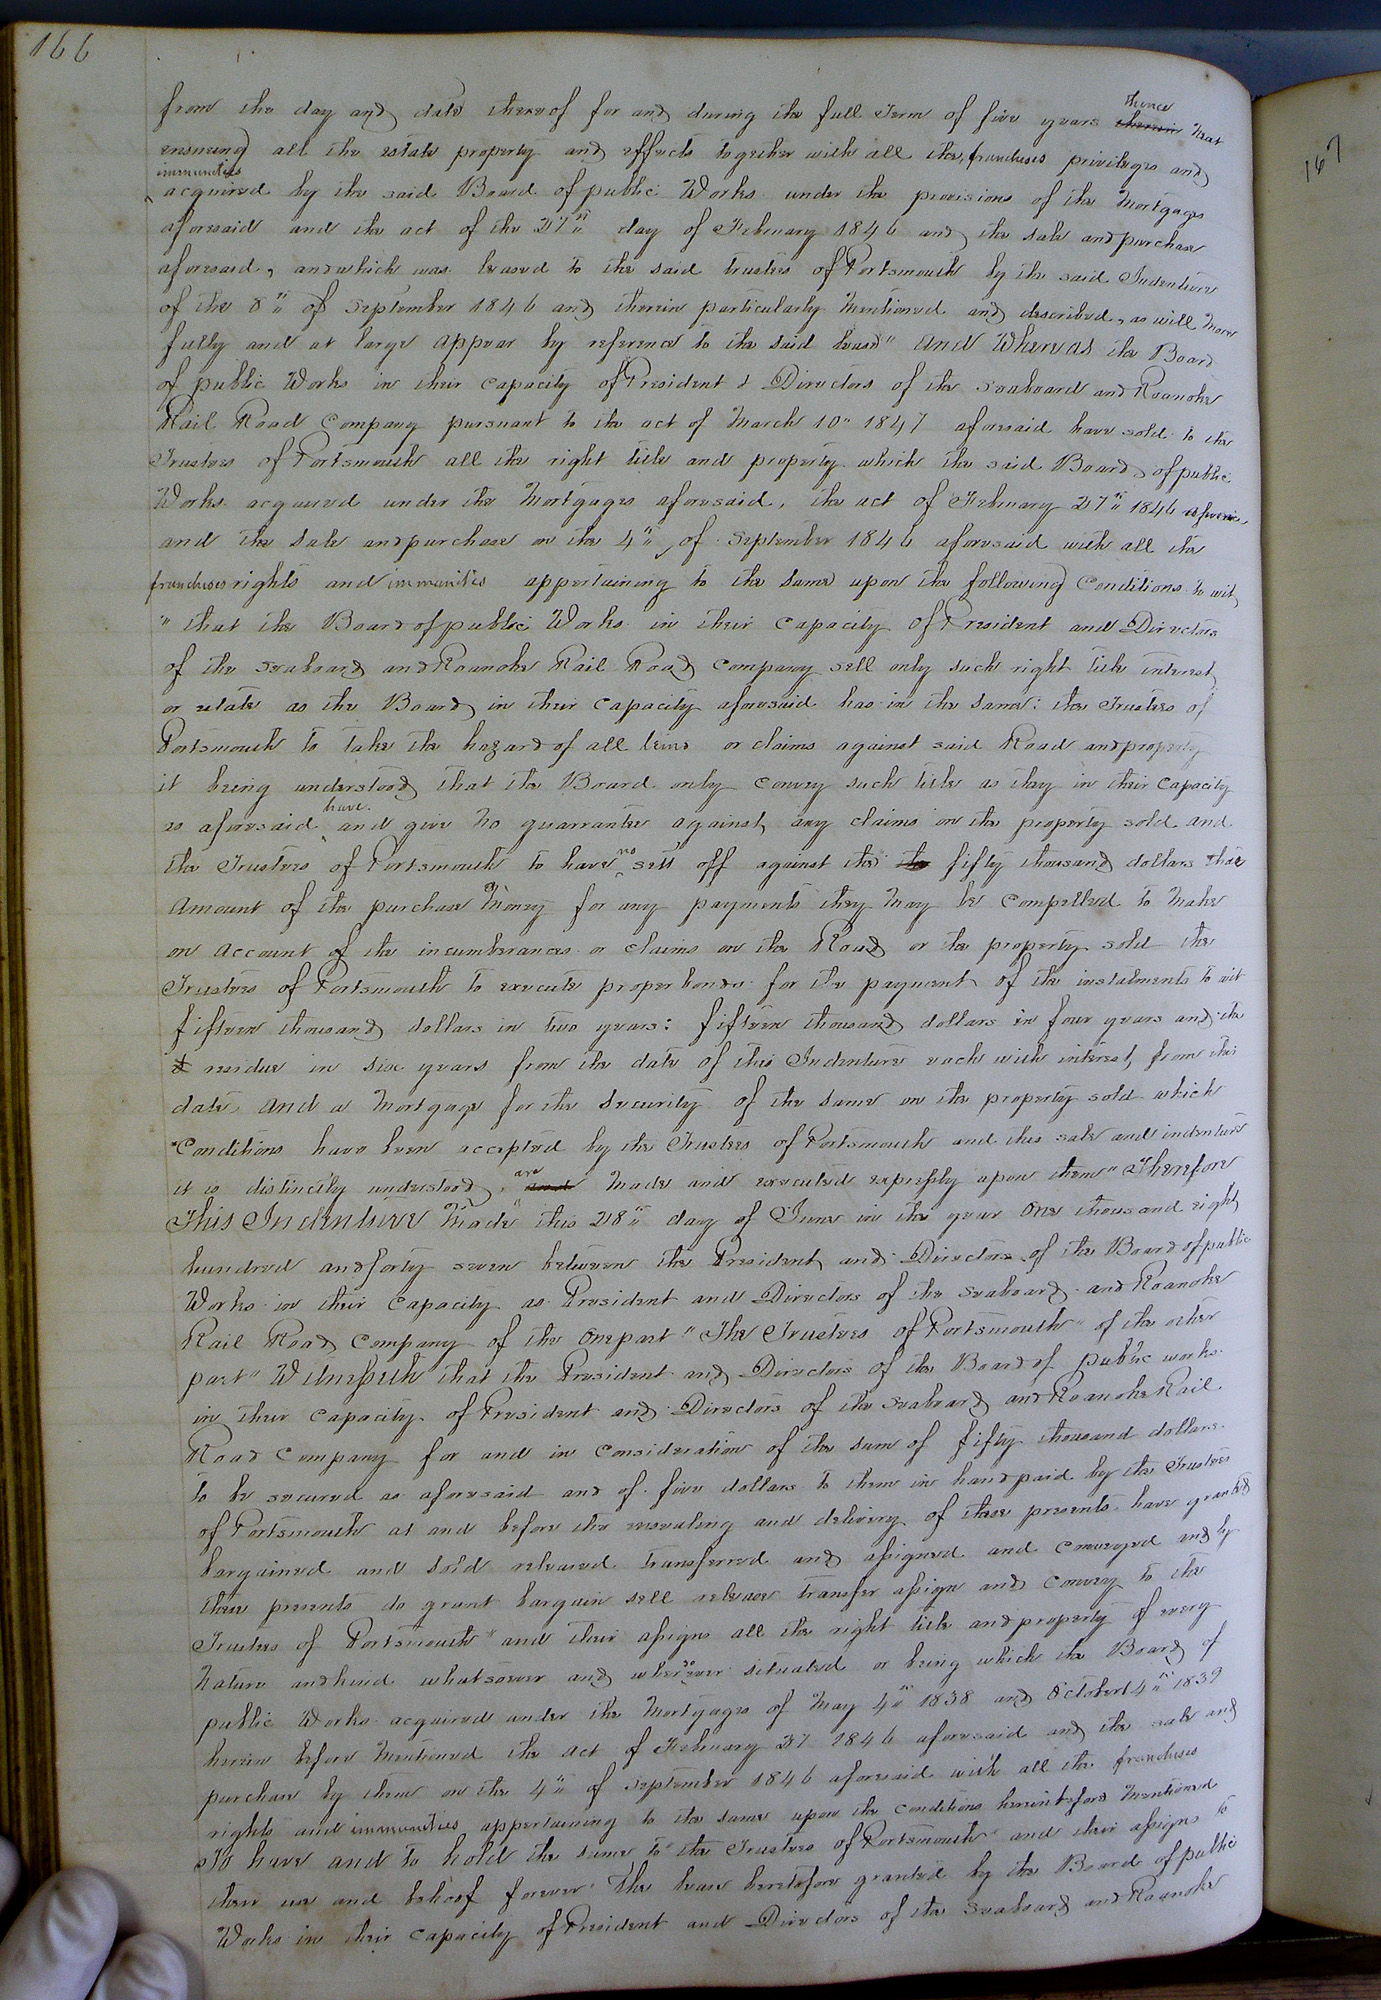 166
from the day and date thereof for and during the full Term of five years therein thence next
ensueing all the estate property and effects together with all the, franchises privileges and
immunities
acquired by the said Board of public Works under the provisions of the Mortgages
aforesaid and the act of the 27" day of February 1846 and the sale and purchase
aforesaid, and which was leased to the said trustees of Portsmouth by the said Indenture
of the 8" of September 1846 and therein particularly Mentioned and described, as will more
fully and at large appear by reference to the said lease" And Whereas the Board
of public Works in their capacity of President & Directors of the Seaboard and Roanoke
Rail Road Company pursuant to the act of March 10" 1847 aforesaid have sold to the
Trustees of Portsmouth all the right title and property which the said Board of public
Works acquired under the Mortgages aforesaid, the act of February 27" 1846 aforesaid
and the sale and purchase on the 4" of September 1846 aforesaid with all the
franchises rights and immunities appertaining to the same upon the following Conditions to wit
" that the Board of public Works in their Capacity of President and Directors
of the Seaboard and Roanoke Rail Road Company sell only such right title interest
or estate as the Board in their Capacity aforesaid has in the same: the Trustees of
Portsmouth to take the hazard of all leins or claims against said Road and property
it being understood that the Board only convey such title as they in their Capacity
as aforesaid have and give no guarrantee against any claims on the property sold and
the Trustees of Portsmouth to have no sett off against the the fifty thousand dollars the
Amount of the purchase Money for any payments they May be Compelled to Make
on account of the incumberances or claims on the Road or the property sold the
Trustees of Portsmouth to execute proper bonds for the payment of the instalments to wit
fifteen thousand dollars in two years: fifteen thousand dollars in four years and the
residue in six years from the date of this Indenture each with interest, from this
date and a Mortgage for the security of the same on the property sold which
Conditions have been accepted by the Trustees of Portsmouth and this sale and indenture
it is distinctly understood, and are Made and executed expressly upon them" Therefore
This Indenture Made this 28" day of June in the year One thousand eight
hundred and forty seven between the President and Directors of the Board of public
Works in their Capacity as President and Directors of the Seaboard and Roanoke
Rail Road Company of the one part "The Trustees of Portsmouth" of the other
part" Witnesseth that the President and Directors of the Board of public works
in their capacity of President and Directors of the Seaboard and Roanoke Rail
Road Company for and in Consideration of the sum of fifty thousand dollars
to be secured as aforesaid and of five dollars to them in hand paid by the Trustees
of Portsmouth at and before the ensealing and delivery of these presents have granted
bargained and sold released transferred and assigned and conveyed and by
these presents do grant bargain sell release transfer assign and convey to the
Trustees of Portsmouth" and their assigns all the right title and property of every
Nature and kind whatsoever and wheresoever situated or being which the Board of
public Works acquired under the Mortgages of May 4" 1838 and October 4" 1839
herein before Mentioned the act of February 27 1846 aforesaid and the sale and
purchase by them on the 4" of September 1846 aforesaid with all the franchises
rights and immunities appertaining to the same upon the conditions herein before Mentioned
To have and to hold the same to "the Trustees of Portsmouth" and their assigns to
their use and behoof forever. The lease heretofore granted by the Board of public
Works in their capacity of President and Directors of the Seaboard and Roanoke
167